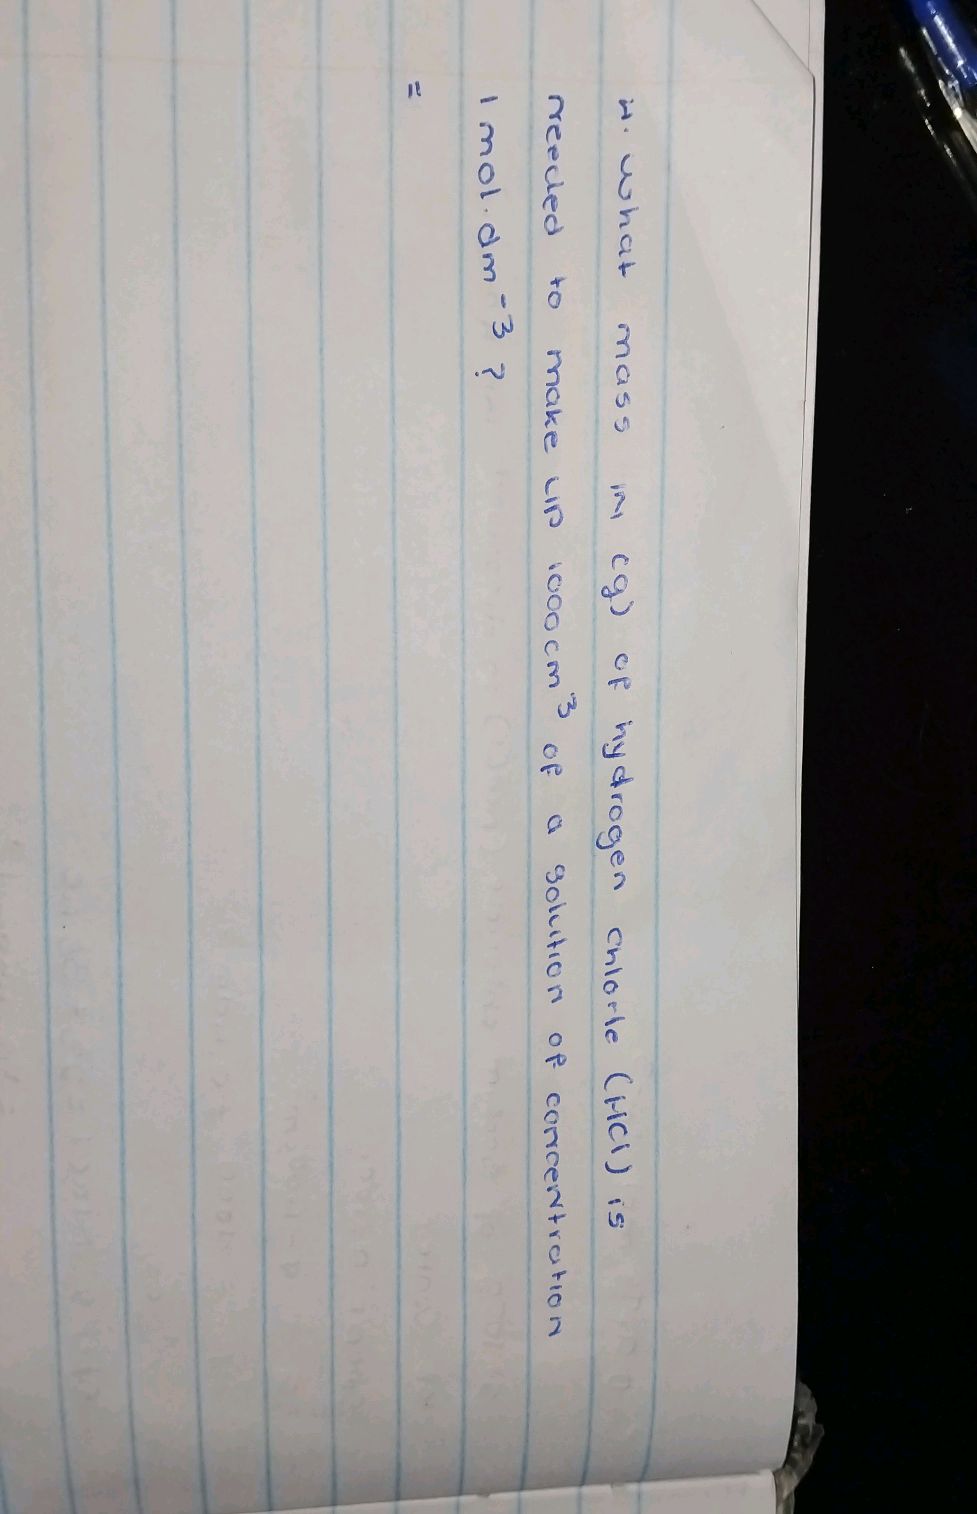 4. What mass in (g) of hydrogen chlorle (HCl) is
needed to make up 1000cm³ of a solution of concentration
1 mol.dm⁻³ ?
=